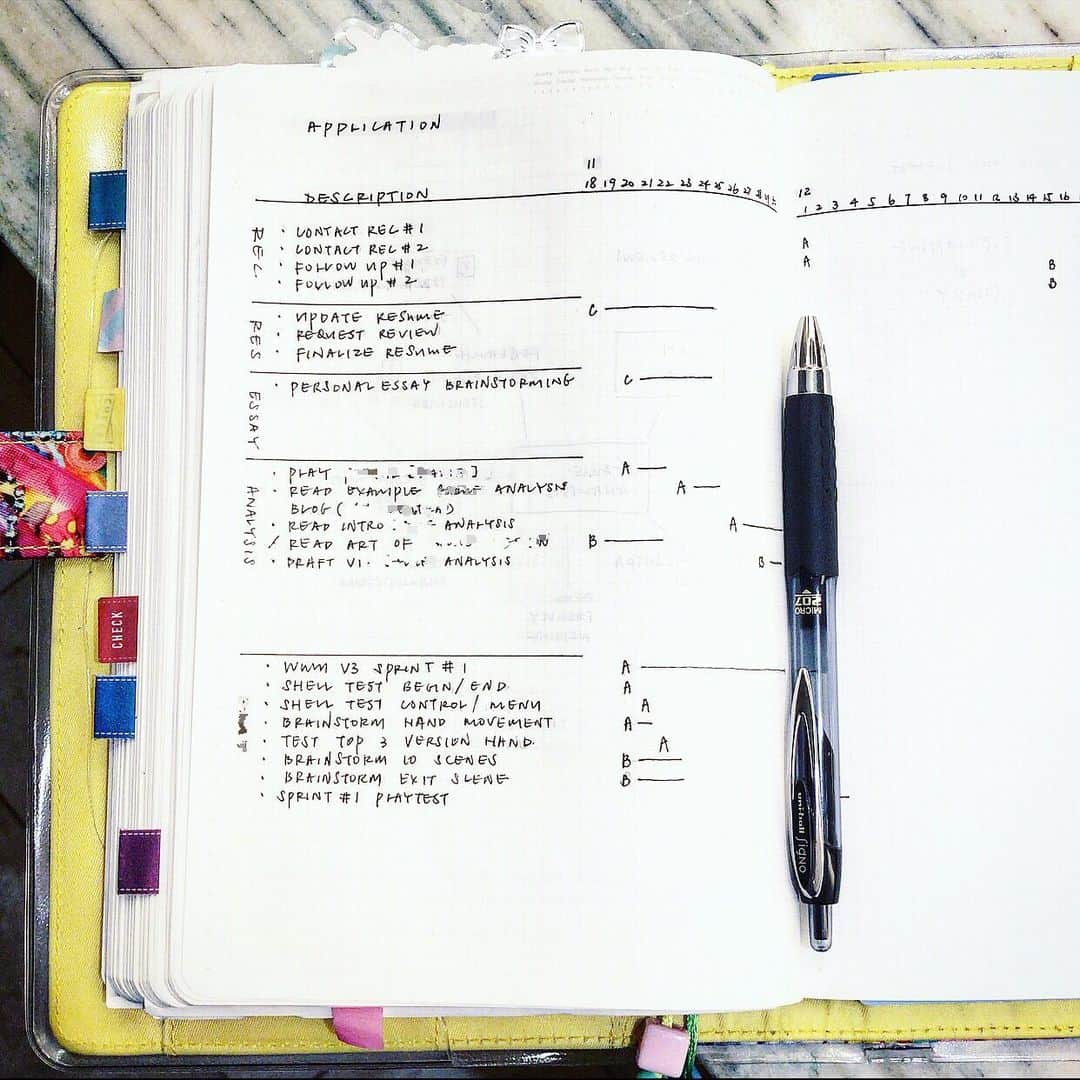 APPLICATION
11
18 19 20 21 22 23 24 25 26 27 28
12
1 2 3 4 5 6 7 8 9 10 11 12 13 14 15 16
DESCRIPTION
REC
· CONTACT REC #1
· CONTACT REC #2
· FOLLOW UP #1
· FOLLOW UP #2
A
A B
B
RES
· UPDATE RESUME C
· REQUEST REVIEW
· FINALIZE RESUME
ESSAY
· PERSONAL ESSAY BRAINSTORMING C
ANALYSIS
· PLAY A
· READ EXAMPLE ANALYSIS A
BLOG (
· READ INTRO ANALYSIS A
· READ ART OF B
· DRAFT V1. ANALYSIS B
· WWM V3 SPRINT #1 A
· SHELL TEST BEGIN/END A
· SHELL TEST CONTROL/MENU A
· BRAINSTORM HAND MOVEMENT A
· TEST TOP 3 VERSION HAND. A
· BRAINSTORM LO SCENES B
· BRAINSTORM EXIT SCENE B
· SPRINT #1 PLAYTEST
CHECK
MICRO 207
uni-ball signo